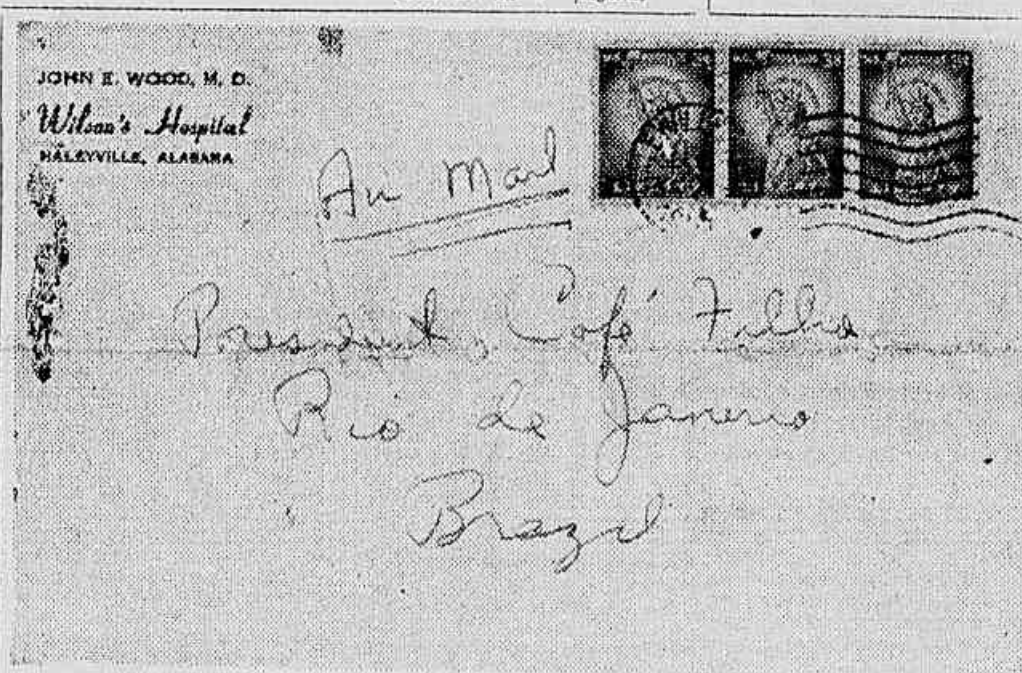 JOHN E. WOOD, M. D.
Wilson's Hospital
HALEYVILLE, ALABAMA
Air Mail
President, Café Filho
Rio de Janerio
Brazil